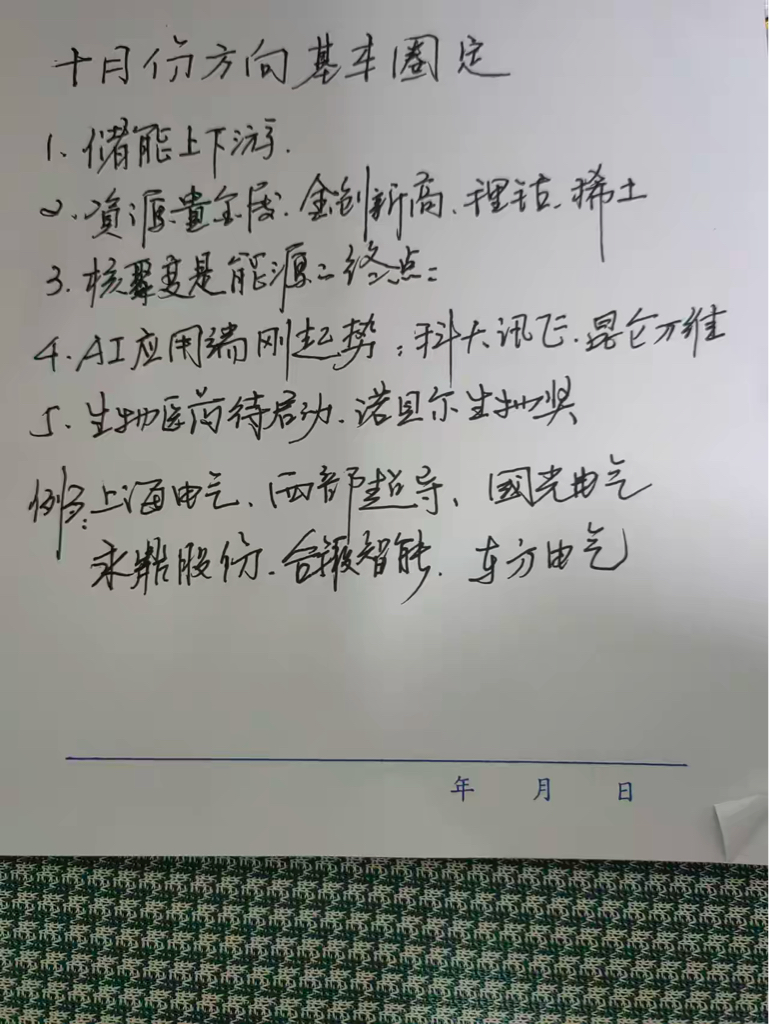 十月份方向基本圈定
1、储能上下游.
2、資源貴金属.金创新高、锂钴、稀土
3.核聚变是能源之终点:
4.AI应用端刚起势:科大讯飞.昆仑万维
5、生物医药待启动.诺贝尔生物奖
例子:上海电气、西部超导、國光电气
永鼎股份.合锻智能.东方电气
年 月 日